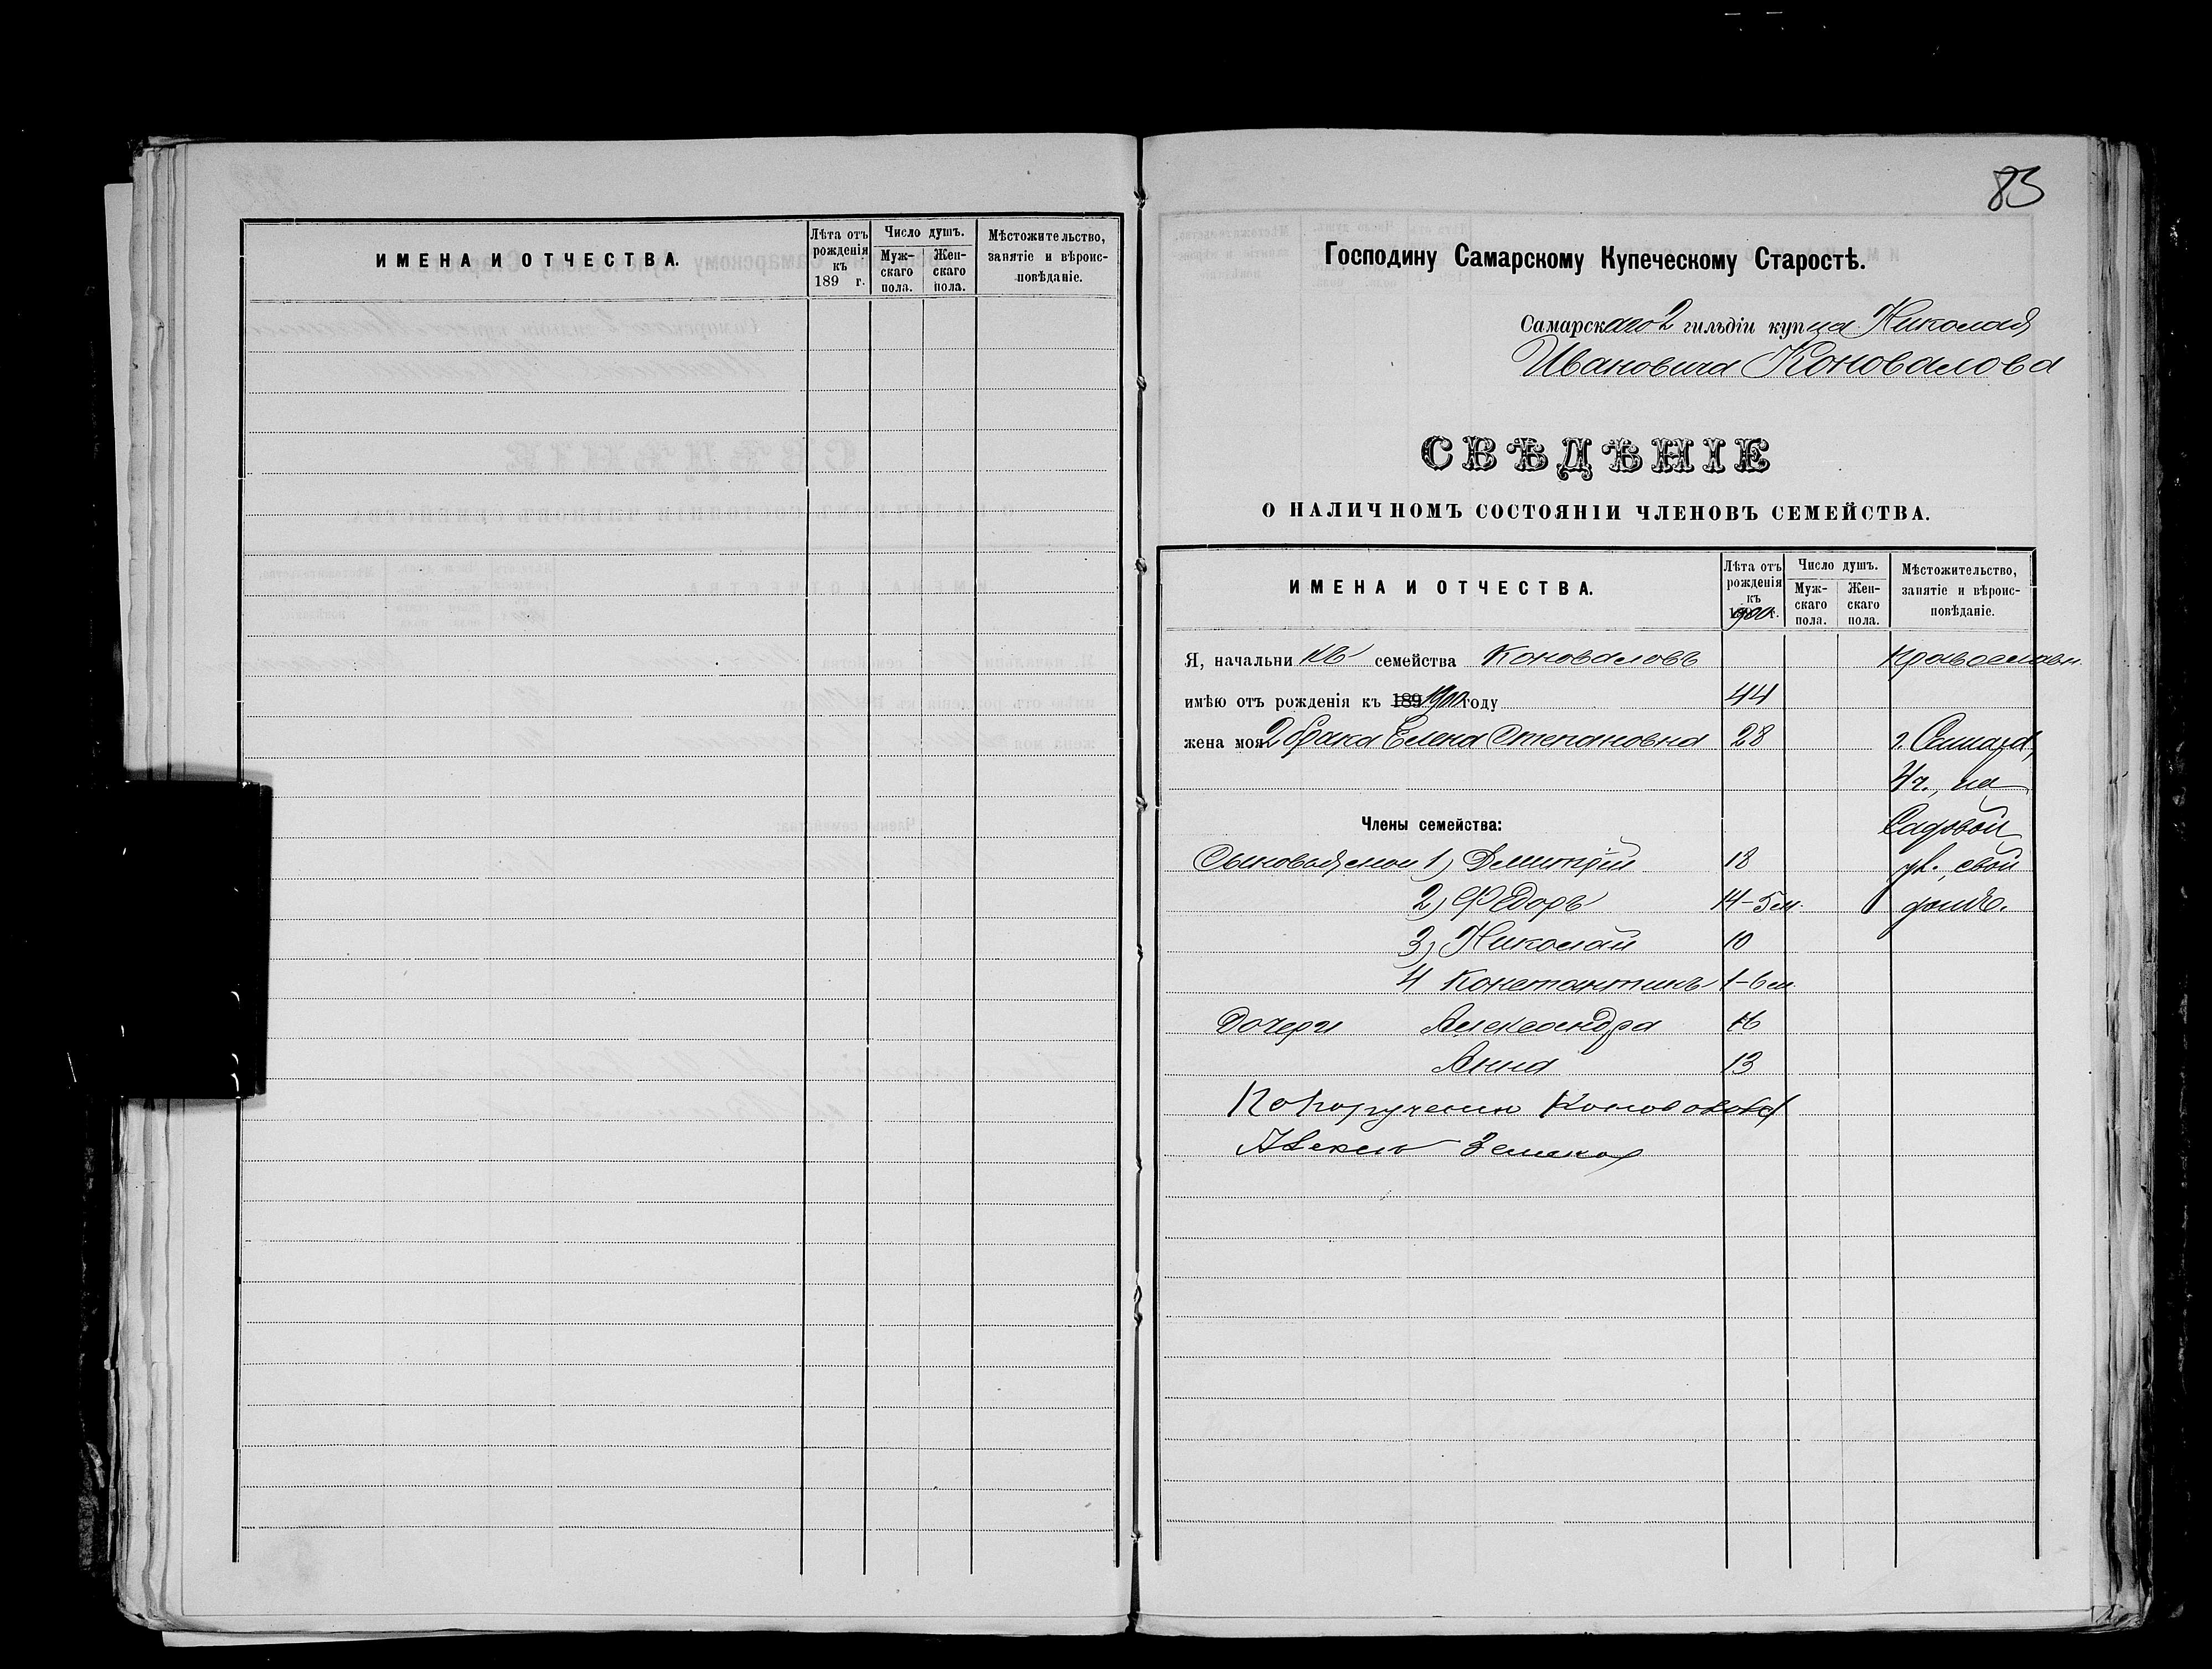 ИМЕНА И ОТЧЕСТВА.
Лѣта отъ рожденія къ 189 г.
Число душъ.
Мужскаго пола.
Женскаго пола.
Мѣстожительство, занятіе и вѣроисповѣданіе.
83
Господину Самарскому Купеческому Старостѣ.
Самарскаго 2 гильдіи купца Николая
Ивановича Коновалова
СВѢДѢНІЕ
О НАЛИЧНОМЪ СОСТОЯНІИ ЧЛЕНОВЪ СЕМЕЙСТВА.
ИМЕНА И ОТЧЕСТВА.
Лѣта отъ рожденія къ 1900 г.
Число душъ.
Мужскаго пола.
Женскаго пола.
Мѣстожительство, занятіе и вѣроисповѣданіе.
Я, начальникъ семейства Коноваловъ Православн.
имѣю отъ рожденія къ 189 1900 году 44
жена моя 2 брака Елена Степановна 28 г. Самара,
4 ч., на
Члены семейства: Садовой
Сыновья мои 1) Дмитрій 18 ул., свой
2) Ѳедоръ 14-5 м. домъ.
3) Николай 10
4 Константинъ 1-6 м.
Дочери Александра 16
Анна 13
По порученію Коновалова